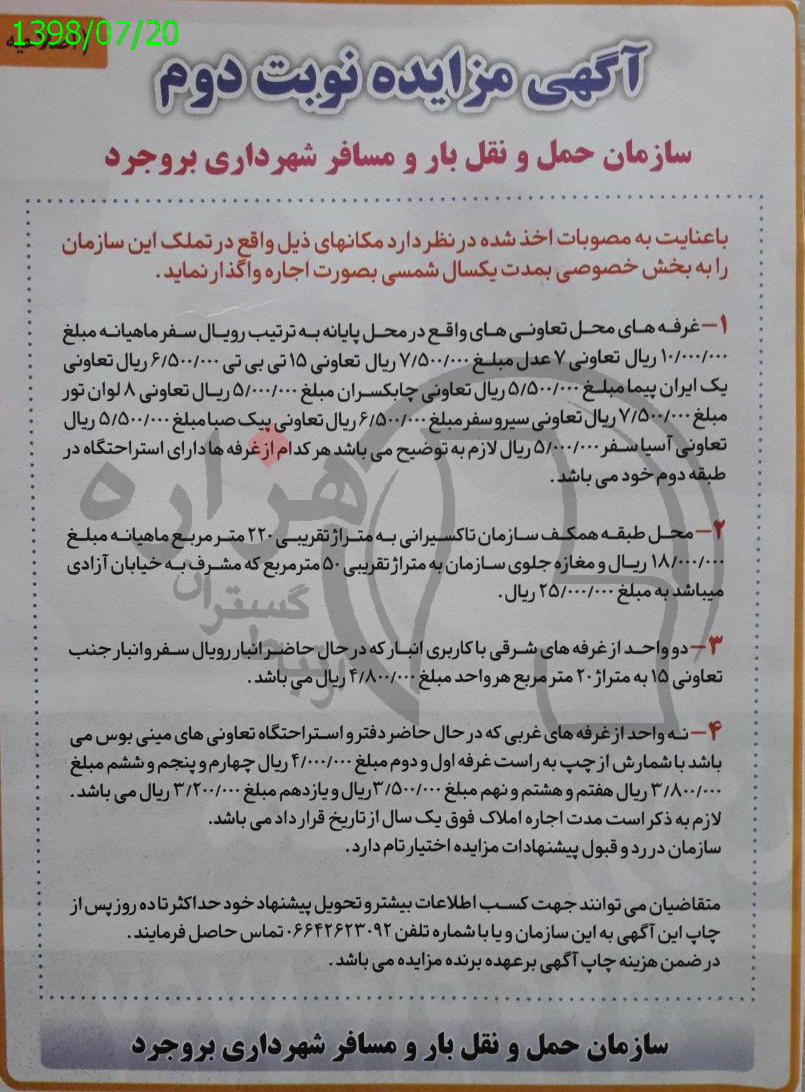 1398/07/20
آگهی مزایده نوبت دوم
سازمان حمل و نقل بار و مسافر شهرداری بروجرد
باعنایت به مصوبات اخذ شده در نظر دارد مکانهای ذیل واقع در تملک این سازمان
را به بخش خصوصی بمدت یکسال شمسی بصورت اجاره واگذار نماید.
۱-غرفه های محل تعاونی های واقع در محل پایانه به ترتیب رویال سفر ماهیانه مبلغ
۱۰/۰۰۰/۰۰۰ ریال تعاونی ۷ عدل مبلغ ۷/۵۰۰/۰۰۰ ریال تعاونی ۱۵ تی بی تی ۶/۵۰۰/۰۰۰ ریال تعاونی
یک ایران پیما مبلغ ۵/۵۰۰/۰۰۰ ریال تعاونی چابکسران مبلغ ۵/۰۰۰/۰۰۰ ریال تعاونی ۸ لوان تور
مبلغ ۷/۵۰۰/۰۰۰ ریال تعاونی سیروسفر مبلغ ۶/۵۰۰/۰۰۰ ریال تعاونی پیک صبا مبلغ ۵/۵۰۰/۰۰۰ ریال
تعاونی آسیا سفر ۵/۰۰۰/۰۰۰ ریال لازم به توضیح می باشد هر کدام از غرفه ها دارای استراحتگاه در
طبقه دوم خود می باشد.
۲-محل طبقه همکف سازمان تاکسیرانی به متراژ تقریبی ۲۲۰ متر مربع ماهیانه مبلغ
۱۸/۰۰۰/۰۰۰ ریال و مغازه جلوی سازمان به متراژ تقریبی ۵۰ مترمربع که مشرف به خیابان آزادی
میباشد به مبلغ ۲۵/۰۰۰/۰۰۰ ریال.
۳-دو واحد از غرفه های شرقی با کاربری انبار که در حال حاضر انبار رویال سفر و انبار جنب
تعاونی ۱۵ به متراژ ۲۰ متر مربع هر واحد مبلغ ۴/۸۰۰/۰۰۰ ریال می باشد.
۴-نه واحد از غرفه های غربی که در حال حاضر دفتر و استراحتگاه تعاونی های مینی بوس می
باشد با شمارش از چپ به راست غرفه اول و دوم مبلغ ۴/۰۰۰/۰۰۰ ریال چهارم و پنجم و ششم مبلغ
۳/۸۰۰/۰۰۰ ریال هفتم و هشتم و نهم مبلغ ۳/۵۰۰/۰۰۰ ریال و یازدهم مبلغ ۳/۲۰۰/۰۰۰ ریال می باشد.
لازم به ذکر است مدت اجاره املاک فوق یک سال از تاریخ قرار داد می باشد.
سازمان در رد و قبول پیشنهادات مزایده اختیار تام دارد.
متقاضیان می توانند جهت کسب اطلاعات بیشتر و تحویل پیشنهاد خود حداکثر تا ده روز پس از
چاپ این آگهی به این سازمان و یا با شماره تلفن ۰۶۶۴۲۶۲۳۰۹۲ تماس حاصل فرمایند.
در ضمن هزینه چاپ آگهی بر عهده برنده مزایده می باشد.
سازمان حمل و نقل بار و مسافر شهرداری بروجرد
هزاره
گستران